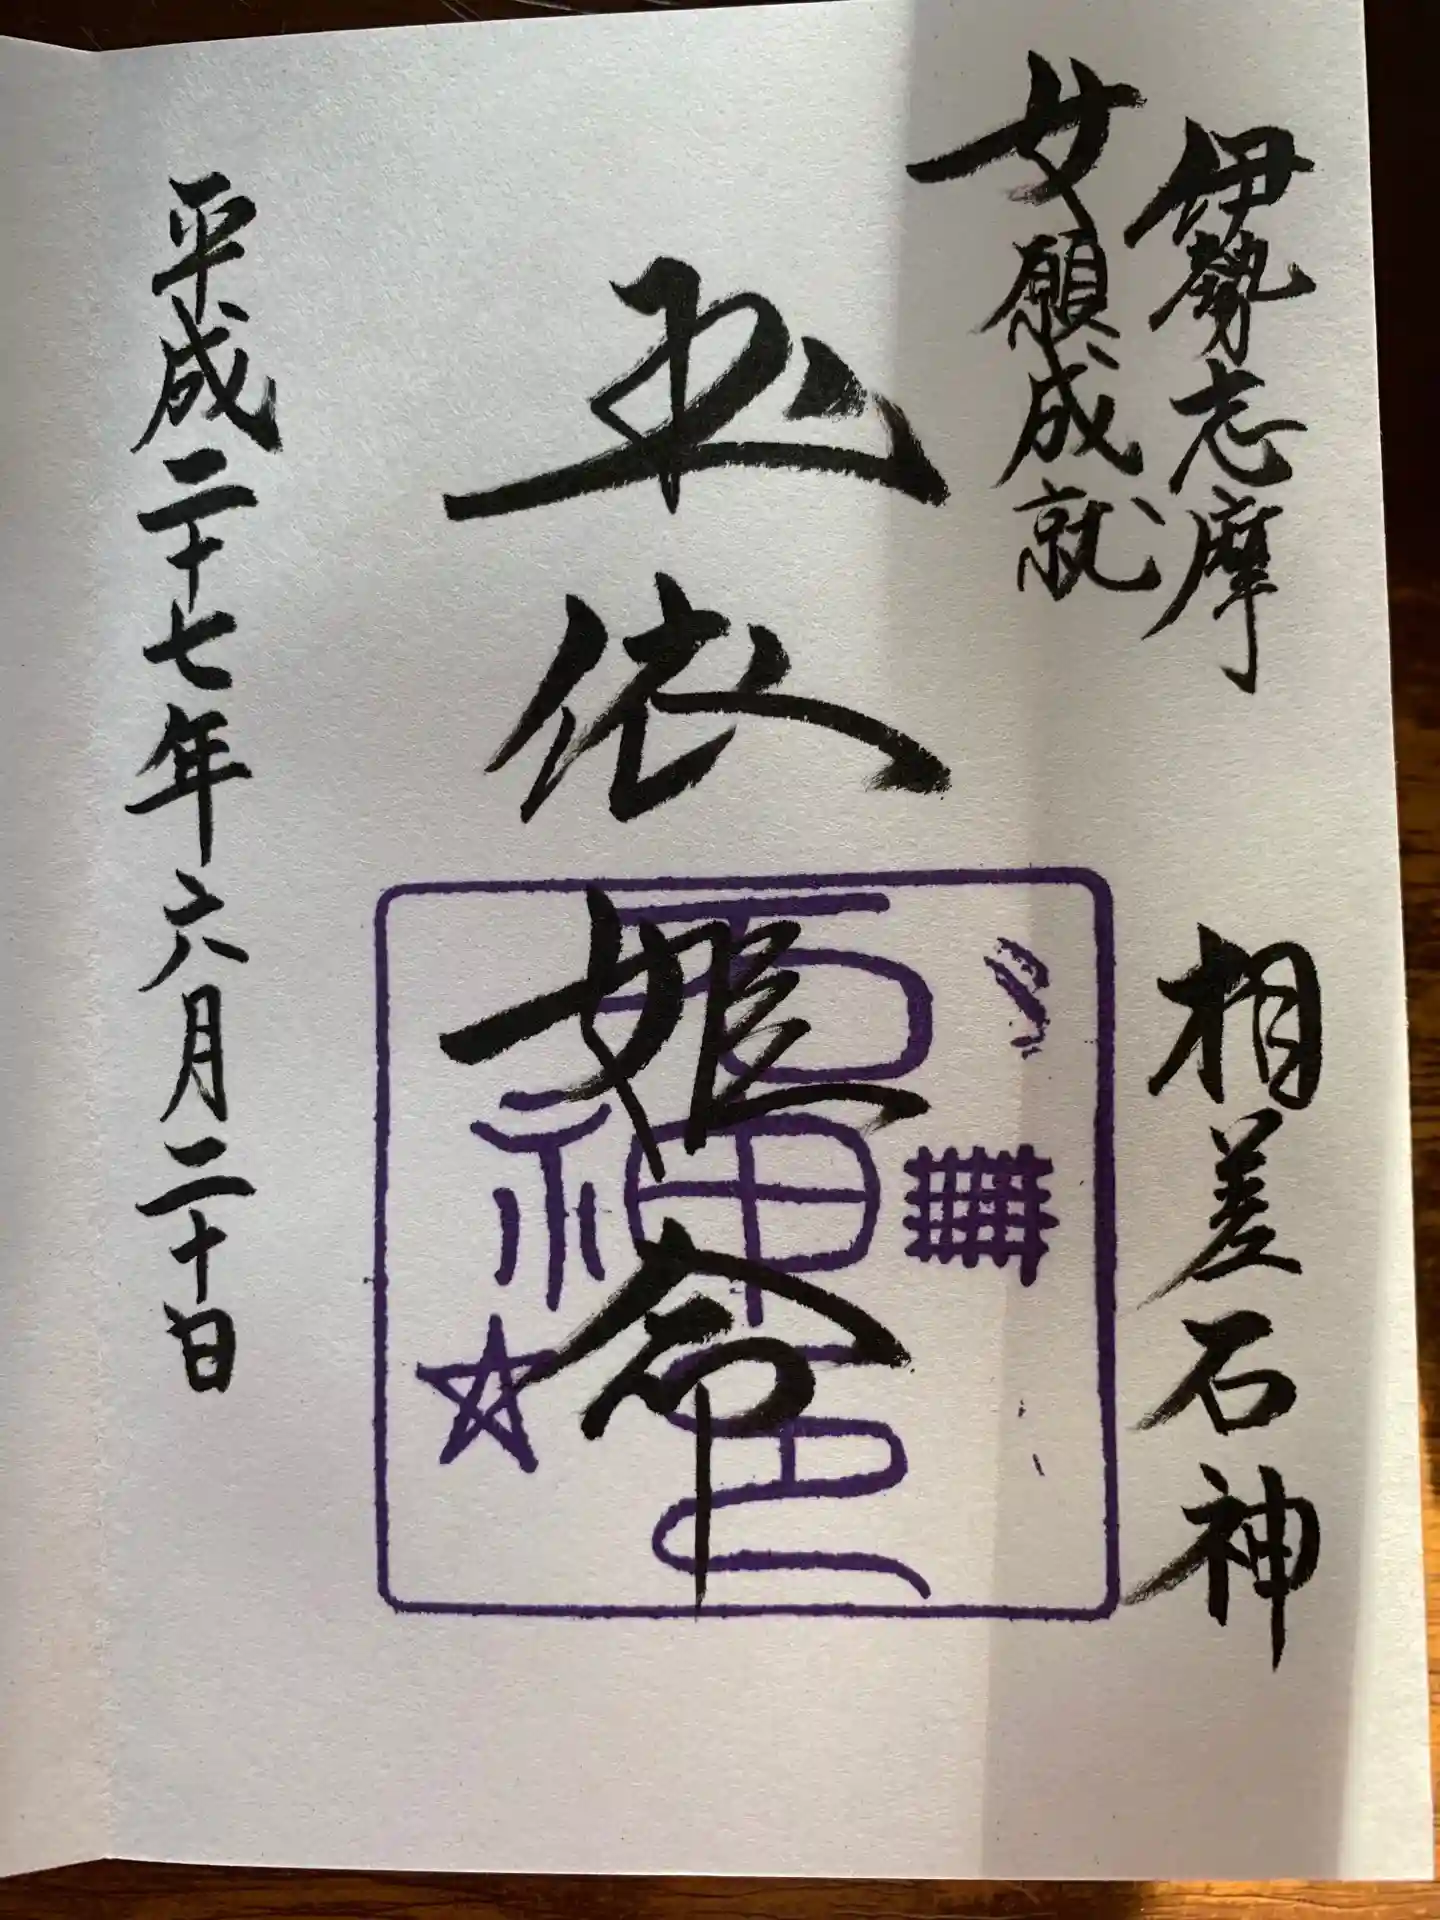 伊勢志摩
女願成就
相差石神
玉依姫命
石神
平成二十七年六月二十日